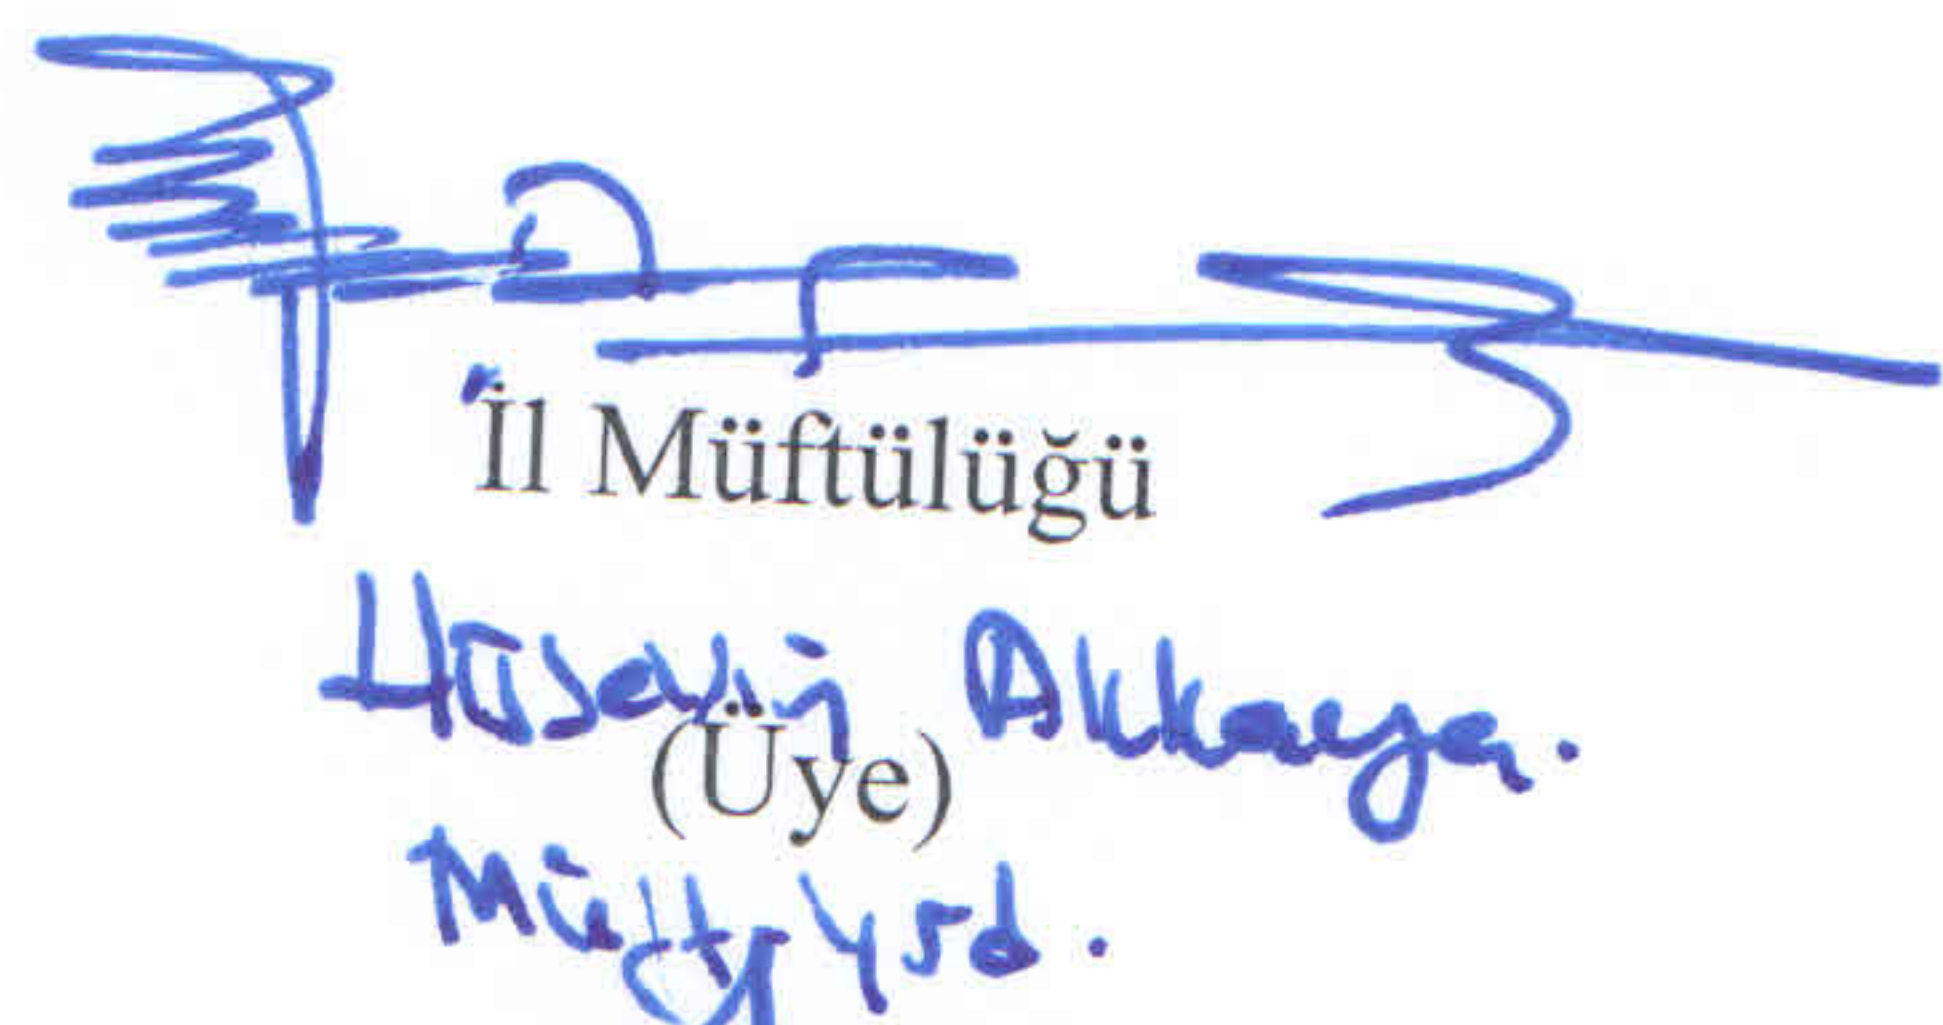 İl Müftülüğü
Hüseyin Akkaya.
(Üye)
Müftü Yrd.